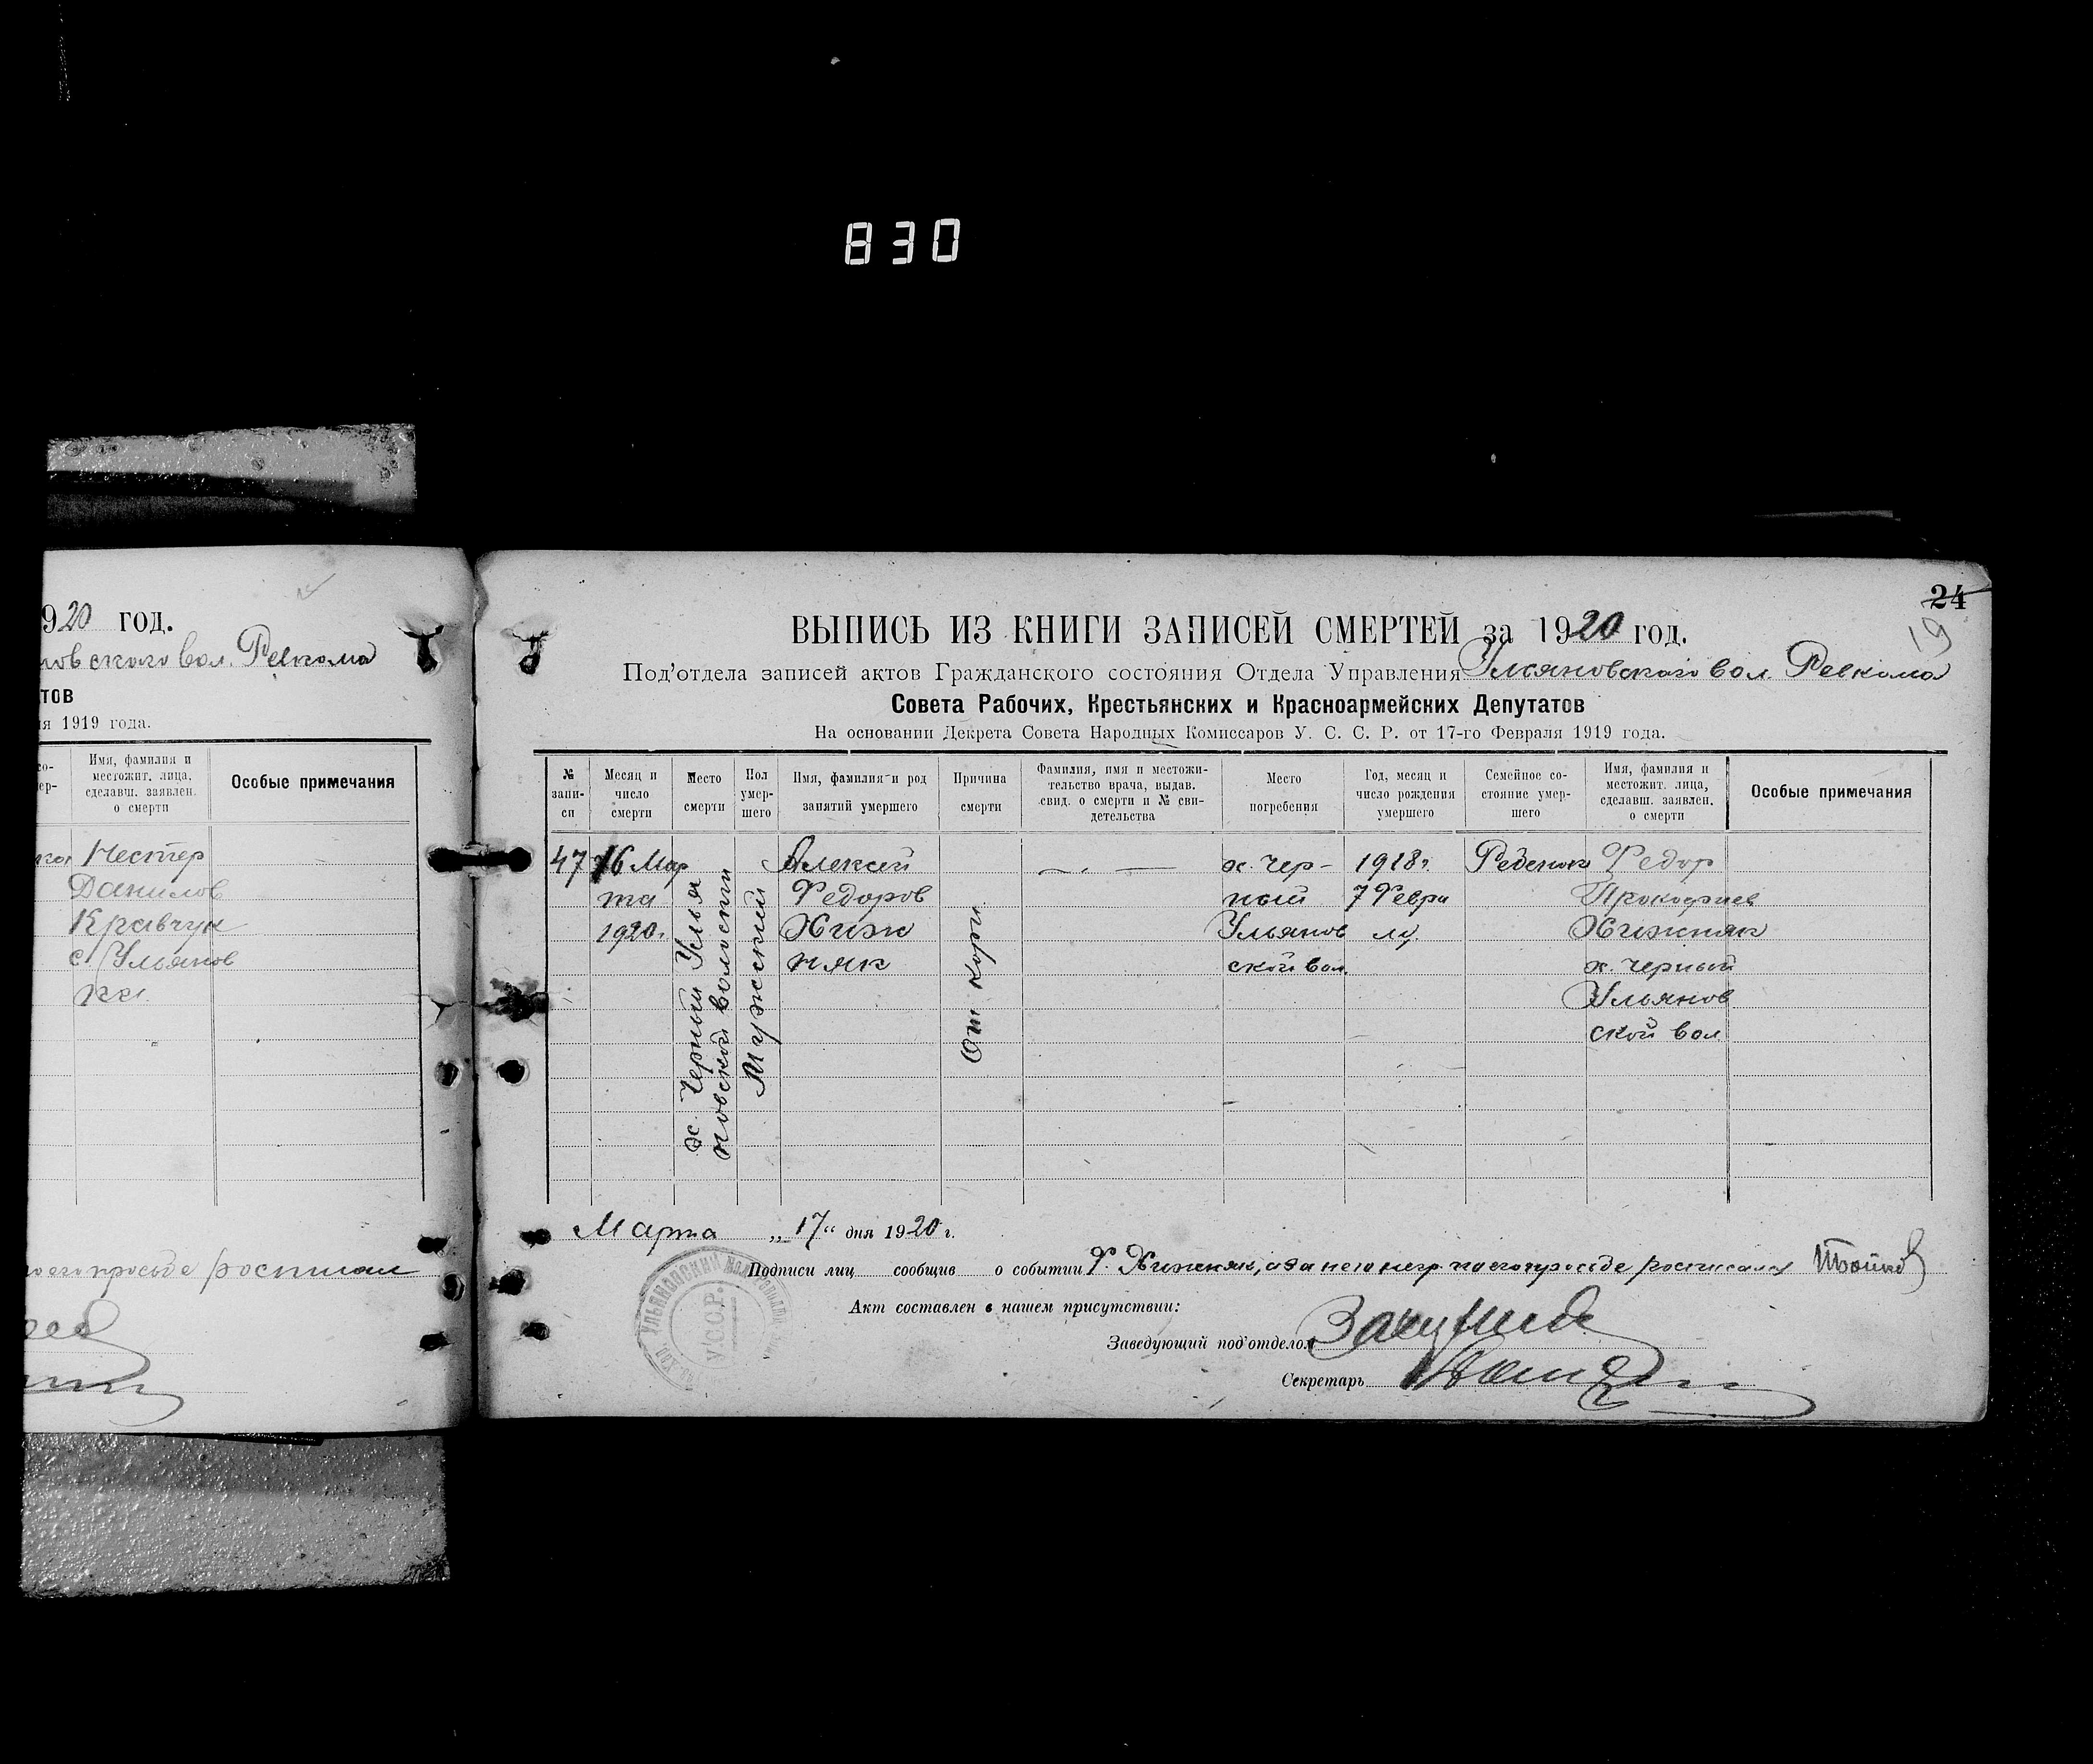 830
920 год.
новского вол. Ревкома
тов
ия 1919 года.
Имя, фамилия и
местожит. лица,
сделавш. заявлен.
о смерти
Особые примечания
Нестер
Данилов
Кравчук
с. Ульянов
ка.
его просьбе
24
19
ВЫПИСЬ ИЗ КНИГИ ЗАПИСЕЙ СМЕРТЕЙ за 1920 год.
Под'отдела записей актов Гражданского состояния Отдела Управления Ульяновского вол. Ревкома
Совета Рабочих, Крестьянских и Красноармейских Депутатов
На основании Декрета Совета Народных Комиссаров У. С. С. Р. от 17-го Февраля 1919 года.
№
запи-
си
Месяц и
число
смерти
Место
смерти
Пол
умер-
шего
Имя, фамилия и род
занятий умершего
Причина
смерти
Фамилия, имя и местожи-
тельство врача, выдав.
свид. о смерти и № сви-
детельства
Место
погребения
Год, месяц и
число рождения
умершего
Семейное со-
стояние умер-
шего
Имя, фамилия и
местожит. лица,
сделавш. заявлен.
о смерти
Особые примечания
47
16 Мар
та
1920г.
х. Черный Улья
новской волости
Мужский
Алексей
Федоров
Хиж
няк
От кори
х. Чер-
ный
Ульянов
ской вол.
1918г.
7 Февра
ля.
Ребенок
Федор
Прокофиев
Хижняк
х. Черный
Ульянов
ской вол
Марта „17“ дня 1920 г.
Подписи лиц сообщив о событии Ф. Хижняк, а за него негр. по его просьбе росписался
Акт составлен в нашем присутствии:
Заведующий под'отделом
Секретарь